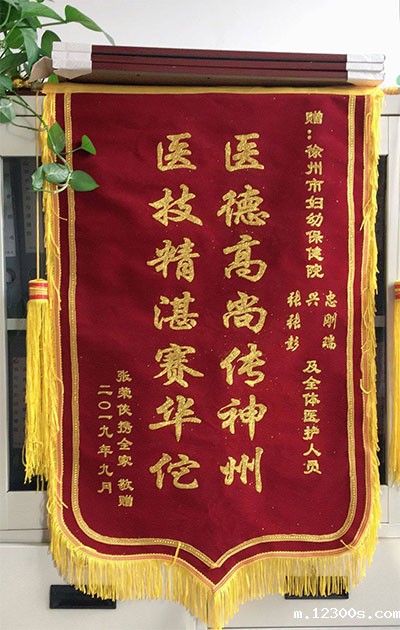 赠：徐州市妇幼保健院
张兴忠
张刚
彭
及全体医护人员
医德高尚传神州
医技精湛赛华佗
张荣侠携全家 敬赠
二〇一九年九月
m.12300s.com